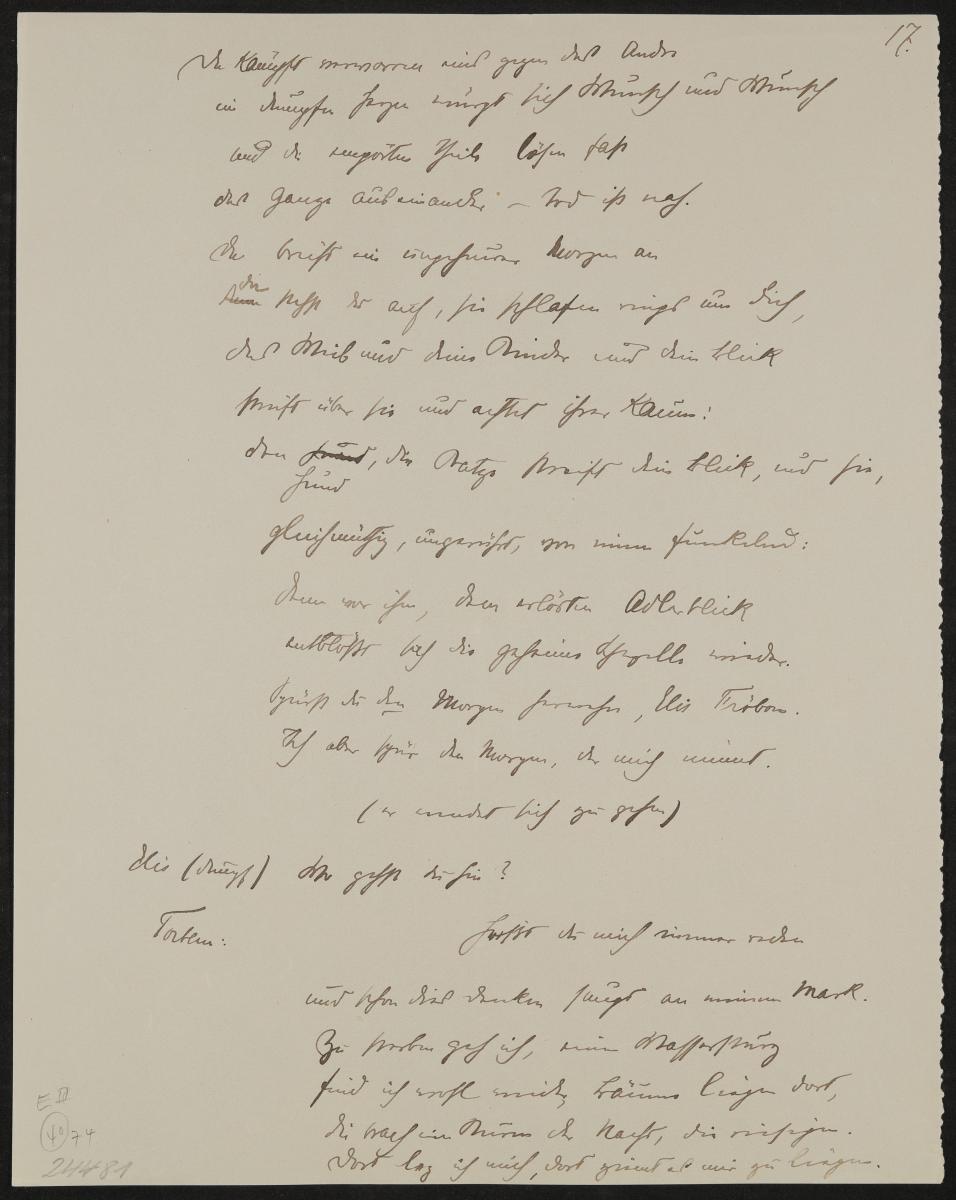 17.
Da kämpft verworren eins gegen das Andre
im dumpfen Herzen würgt sich Wunsch und Wunsch
und die empörten Theile lösen fast
das Ganze auseinander – Tod ist nah.
Da bricht ein ungeheurer Morgen an
du stehst da auf, sie schlafen rings um dich,
das Weib und deine Kinder und dein Blick
streift über sie und achtet ihrer kaum:
den Hund, die Katze streift dein Blick, und sie,
Hund
gleichmüthig, ungerührt, von neuem funkelnd:
denn vor ihm, dem erlösten Adlerblick
entblößt sich die geheime Schwelle wieder.
Spürst du den Morgen, Elis Fröbom.
Ich aber spür den Morgen, der mich nimmt.
(er wendet sich zu gehen)
Elis (dumpf) Wo gehst du hin?
Torbern: Heißt du mich immer reden
und schon dies Denken saugt an meinem Mark.
Zu sterben geh ich, einen Wassersturz
find ich wohl wieder, Bäume liegen dort,
die brach im Sturm der Nacht, die riesigen.
Dort leg ich mich, dort ziemt es mir zu liegen.
E III
40 74
24481